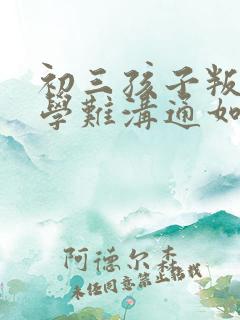 初三孩子叛
學難溝通如
阿德尔森
未经同意禁止转载